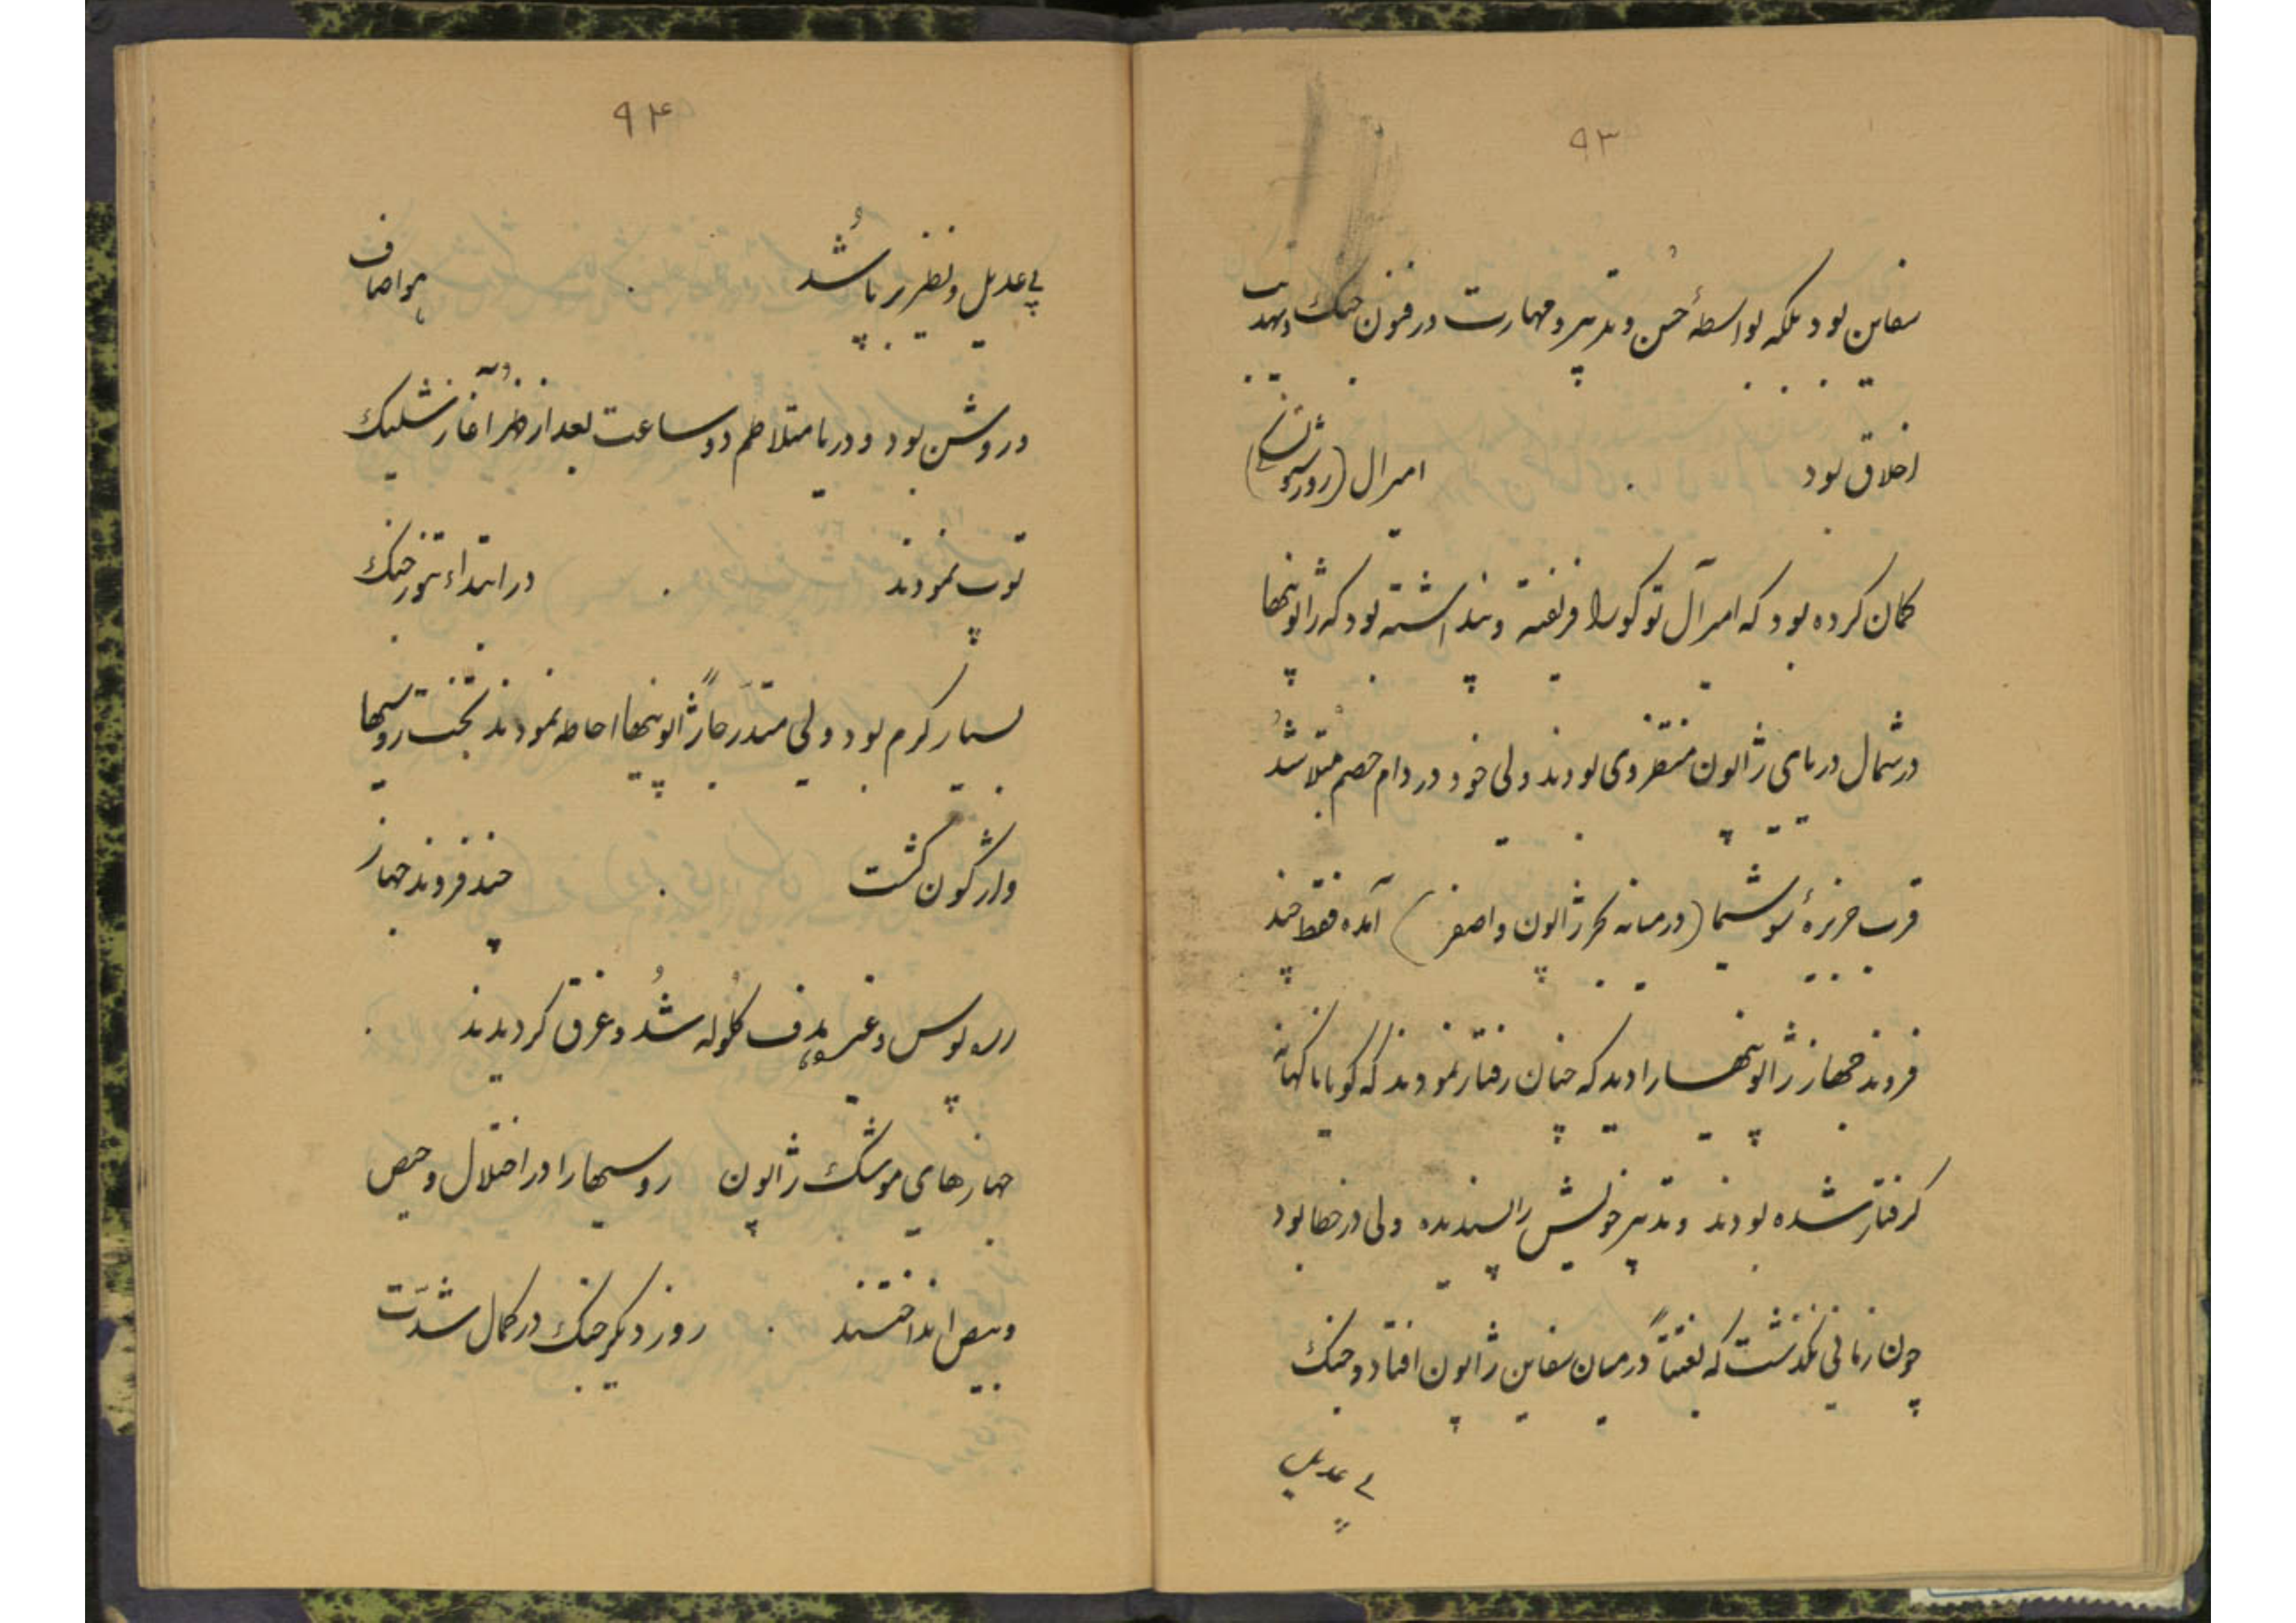 ۹۳
سفاین بود بلکه بواسطهٔ حسن و تدبیر و مهارت در فنون جنک و تهذیب
اخلاق بود . امیرال (روژسونسکی)
کمان کرده بود که امیرآل توکو را فریفته و پنداشته بود که ژاپونیها
در شمال دریای ژاپون منتظر وی بودند ولی خود در دام خصم مبتلا شد
قرب جزیرهٔ سوشیما (در میانه بحر ژاپون و اصفر) آمده فقط چند
فروند جهاز ژاپونیها را دید که چنان رفتار نمودند که کویا ناکهانه
کرفتار شده بودند و تدبیر خویش را پسندیده ولی در خطا بود
چون زمانی نکذشت که بغتتاً در میان سفاین ژاپون افتاد و جنک
بی عدیل
۹۴
بی عدیل و نظیر برپا شد . هوا صاف
و روشن بود و دریا متلاطم دو ساعت بعد از ظهر آغاز شلیک
توپ نمودند . در ابتداء تنور جنک
بسیار کرم بود ولی متدرجاً ژاپونیها احاطه نمودند بخت روسیها
واژکون کشت . چند فروند جهاز
و غیره هدف کلوله شد و غرق کردیدند .
جهازهای موشک ژاپون روسیها را در اختلال و حیص
و بیص انداختند . روز دیکر جنک در کمال شدّت